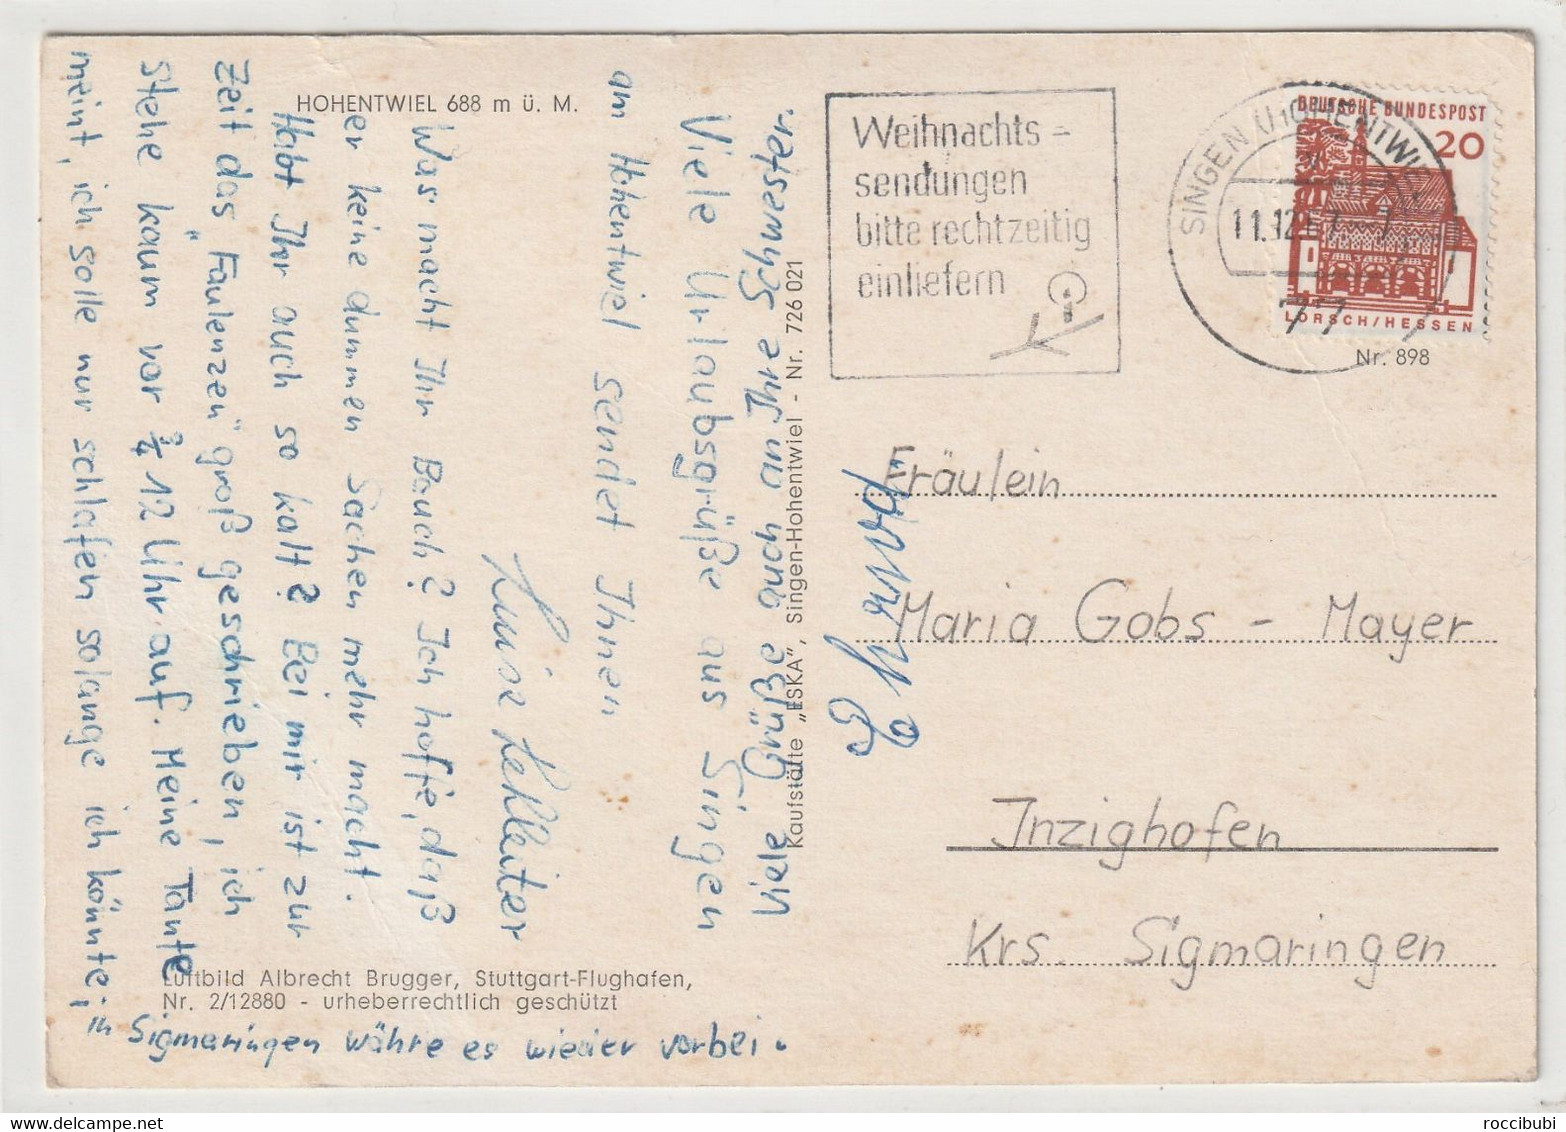 HOHENTWIEL 688 m ü. M.
Viele Grüße auch an Ihre Schwester.
Viele Urlaubsgrüße aus Singen
am Hohentwiel sendet Ihnen
Luise Lehleiter
Was macht Ihr Bauch? Ich hoffe, daß
er keine dummen Sachen mehr macht.
Habt Ihr auch so kalt? Bei mir ist zur
Zeit das „Faulenzen" groß geschrieben, ich
stehe kaum vor ¾ 12 Uhr auf. Meine Tante
meint, ich solle nur schlafen solange ich könnte;
in Sigmaringen währe es wieder vorbei.
Luftbild Albrecht Brugger, Stuttgart-Flughafen,
Nr. 2/12880 - urheberrechtlich geschützt
Kaufstätte „ESKA", Singen-Hohentwiel - Nr. 726 021
Weihnachts-
sendungen
bitte rechtzeitig
einliefern
SINGEN (HOHENTWIEL)
11.12.67
77
DEUTSCHE BUNDESPOST
20
LORSCH/HESSEN
Nr. 898
Fräulein
Maria Gobs - Mayer
Inzighofen
Krs. Sigmaringen
roccibubi